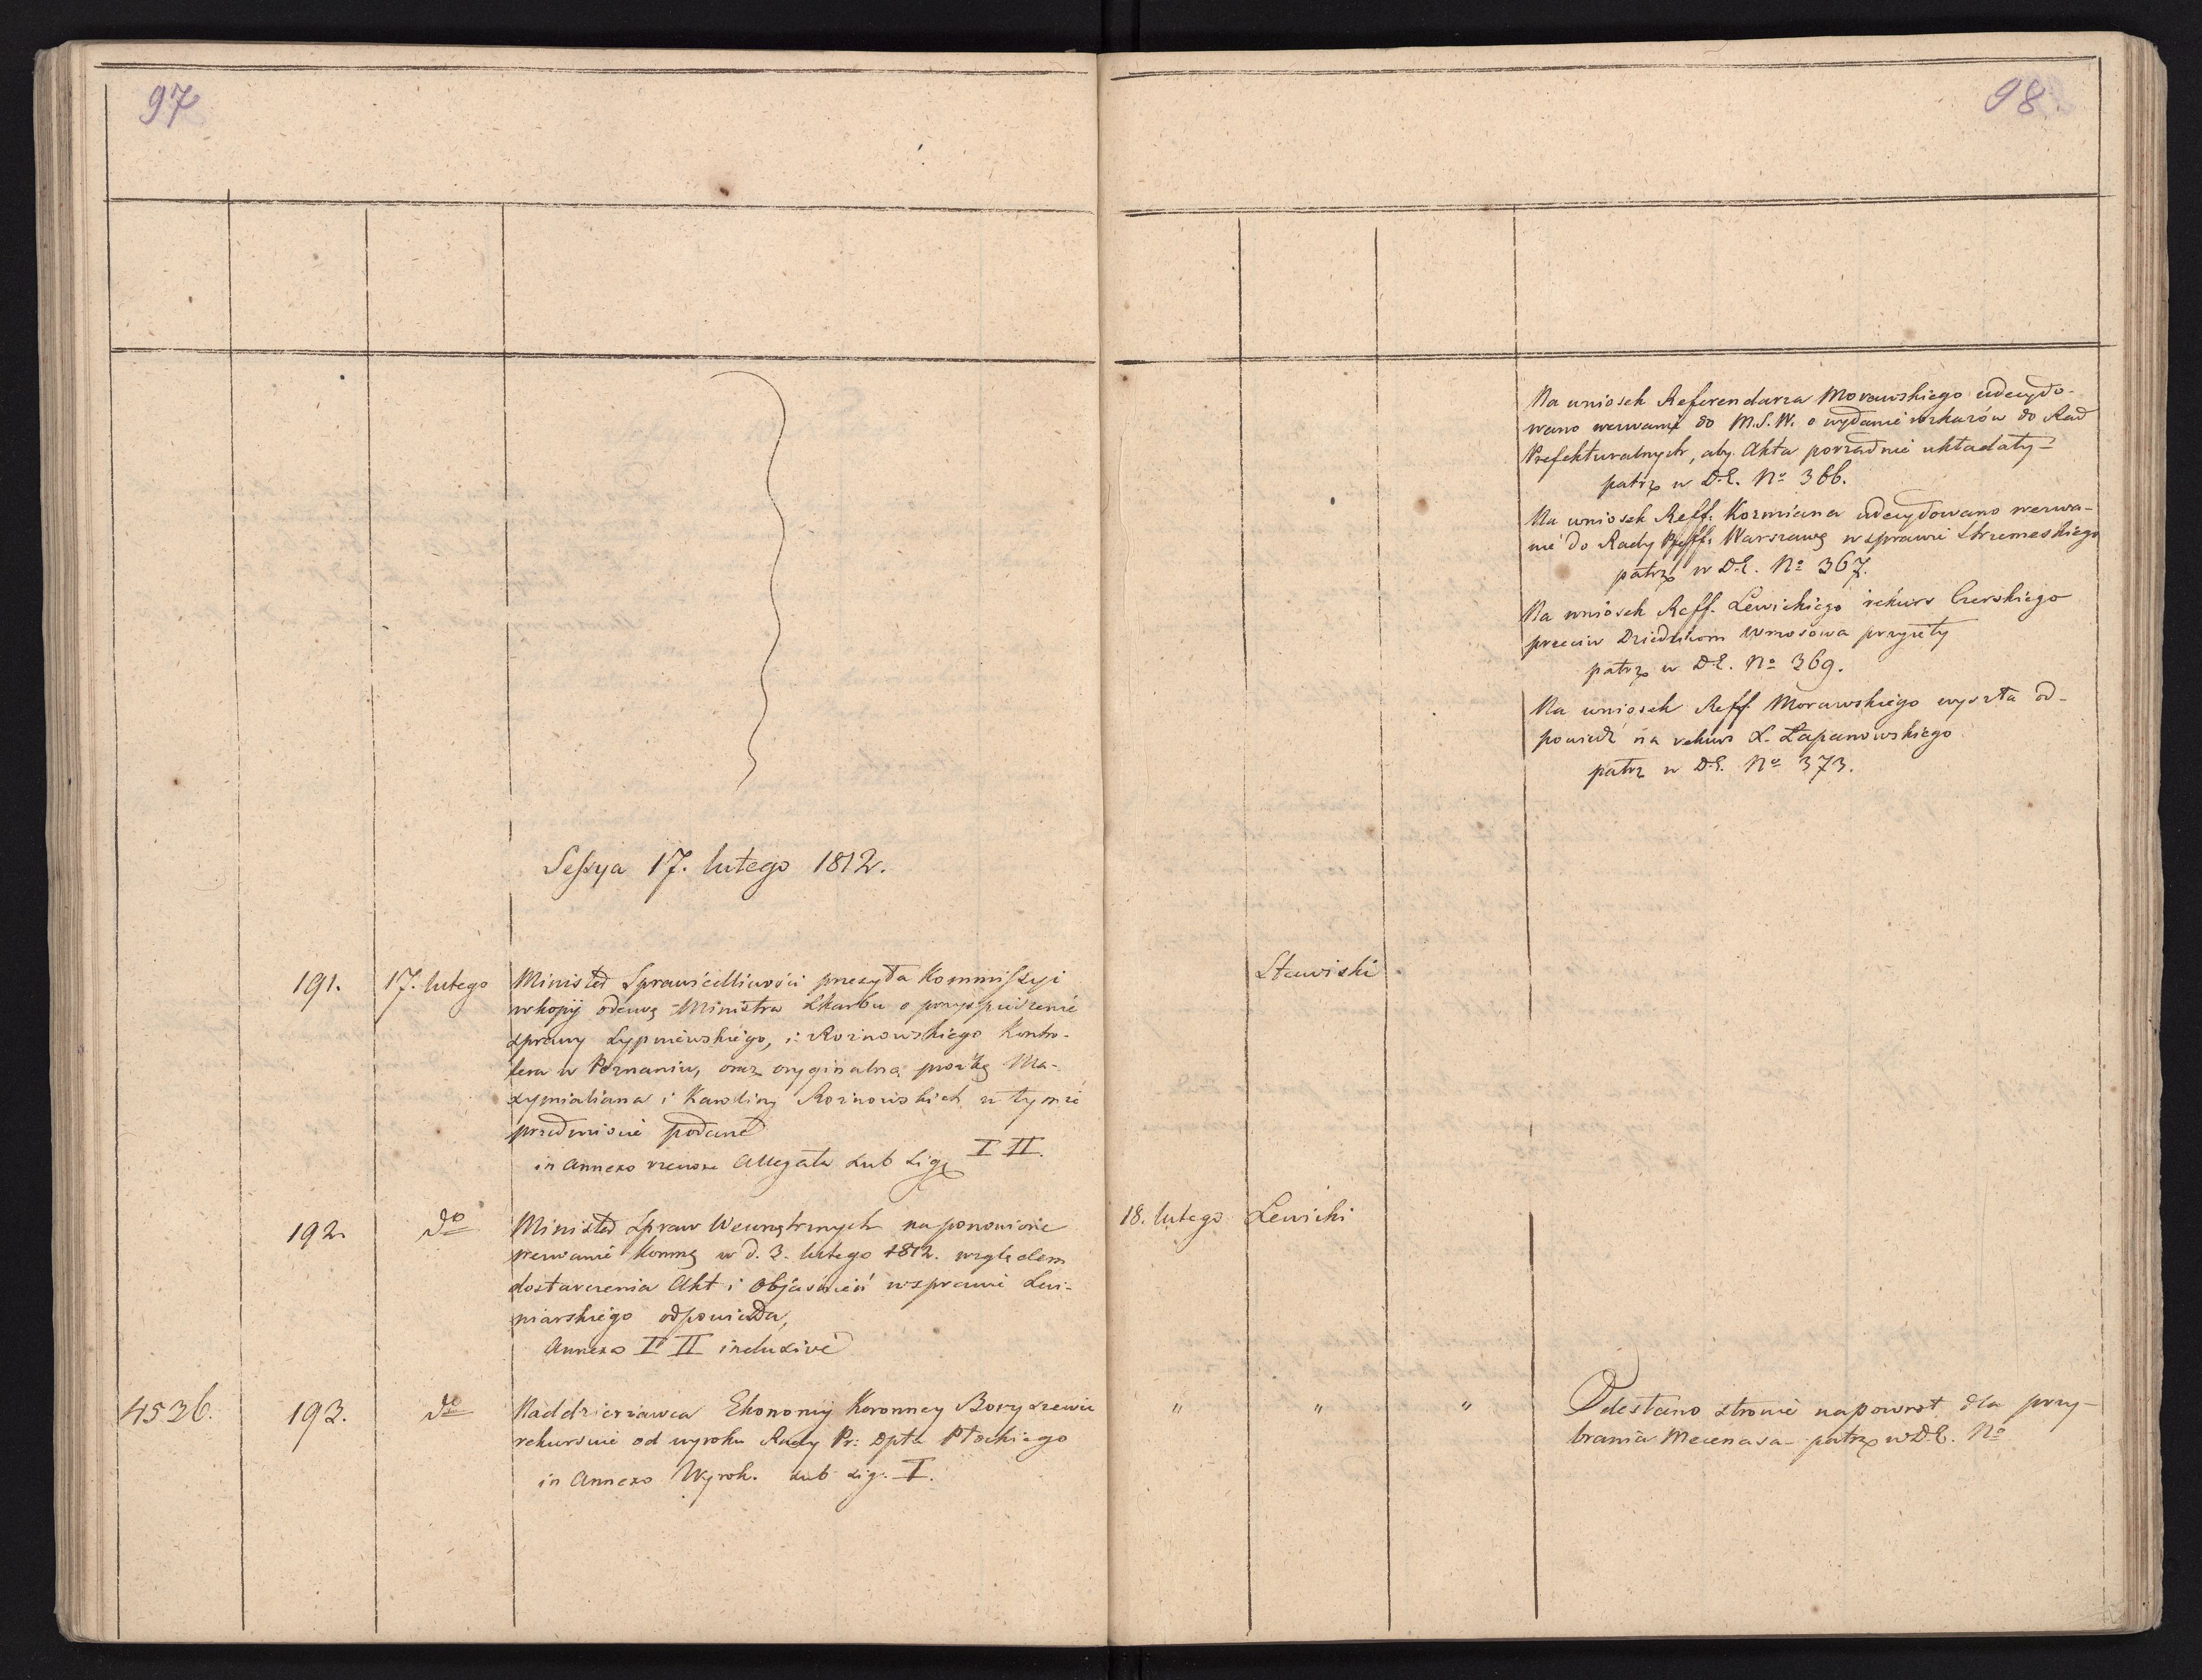 97
Sessya 17. lutego 1812.
191. 17. lutego Minister Sprawiedliwości przesyła Kommissyi
w kopij odezwę Ministra Skarbu o przyspieszenie
sprawy Lypniewskiego, i Roznowskiego Kontro-
lera w Poznaniu, oraz oryginalną prozbę Ma-
xymialiana i Karoliny Roznowskich w tymże
przedmiocie podane
in annexo rzeczone Allegata sub Sig. I II.
192. do Minister Spraw Wewnętrznych na ponowione
wezwanie Kommę w d. 3. lutego 1812. względem
dostarczenia Akt i Objaśnień w sprawie Lwi-
niarskiego odpowiada,
Annexa I II inclusive
4526. 193. do Naddzierżawca Ekonomij Koronney Boryszewie
rekursuie od wyroku Rady Pr: Dpta Płockiego
in Annexo Wyrok. sub Sig. I.
98.
Na wniosek Referendarza Morawskiego udecydo-
wano wezwanie do M.S.W. o wydanie wskazów do Rad
Prefekturalnych, aby Akta porządnie układały-
patrz w D.E. No 366.
Na wniosek Reff: Kozmiana udecydowano wezwa-
nie do Rady Preff: Warszawę w sprawie Strzemeskiego
patrz w D.E. No 367.
Na wniosek Reff. Lewickiego rekurs Czerskiego
przeciw Dzieduchom przyięty
patrz w D.E. No 369.
Na wniosek Reff Morawskiego wyszła od-
powiedź na rekurs L. Łapanowskiego
patrz w D.E. No 373.
Stawiski
18. lutego Lewicki
" " " Odesłano stronie napowrot dla przy-
brania Mecenasa - patrz w D.E. No